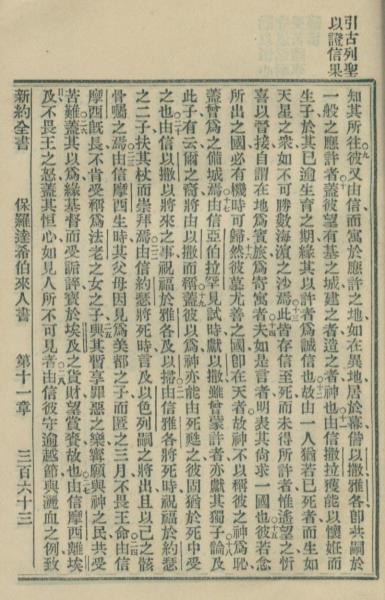 引古列聖
以證信果
知其所往彼又由信而寓於應許之地如在異地居於幕偕以撒雅各卽共嗣於
一般之應許者蓋彼望有基之城建之者造之者神也由信撒拉獲能以懷妊而
生子於其已逾生育之期緣其以許者爲誠信也故由一人猶若已死者而生如
天星之衆如不可勝數海濱之沙焉此皆存信至死而未得所許者惟遙望之忻
喜以晉接自謂在地爲賓旅爲寄寓者夫如是言者明表其尙求一國也彼若念
所出之國必有機時可歸然彼墓尤善之國卽在天者故神不以稱彼之神爲恥
蓋曾爲之備城焉由信亞伯拉罕見試時獻以撒雖曾蒙許者亦獻其獨子論及
此子有云爾之裔將由以撒而稱蓋彼以爲神亦能由死甦之彼固猶於死中受
之也由信以撒以將來之事祝福於雅各及以掃由信雅各將死時祝福於約瑟
之二子扶其杖而崇拜焉由信約瑟將死時言及以色列嗣之將出且以己之骸
骨囑之焉由信摩西生時其父母因見爲美都之子而匿之三月不畏王命由信
摩西旣長不肯受稱爲法老之女之子與其暫享罪惡之樂寧願與神之民共受
苦難蓋其以爲緣基督而受詬誶寶於埃及之貨財望賞賚故也由信摩西離埃
及不畏王之怒蓋其恒心如見人所不可見者由信彼守逾越節與灑血之例致
新約全書 保羅達希伯來人書 第十一章 三百六十三